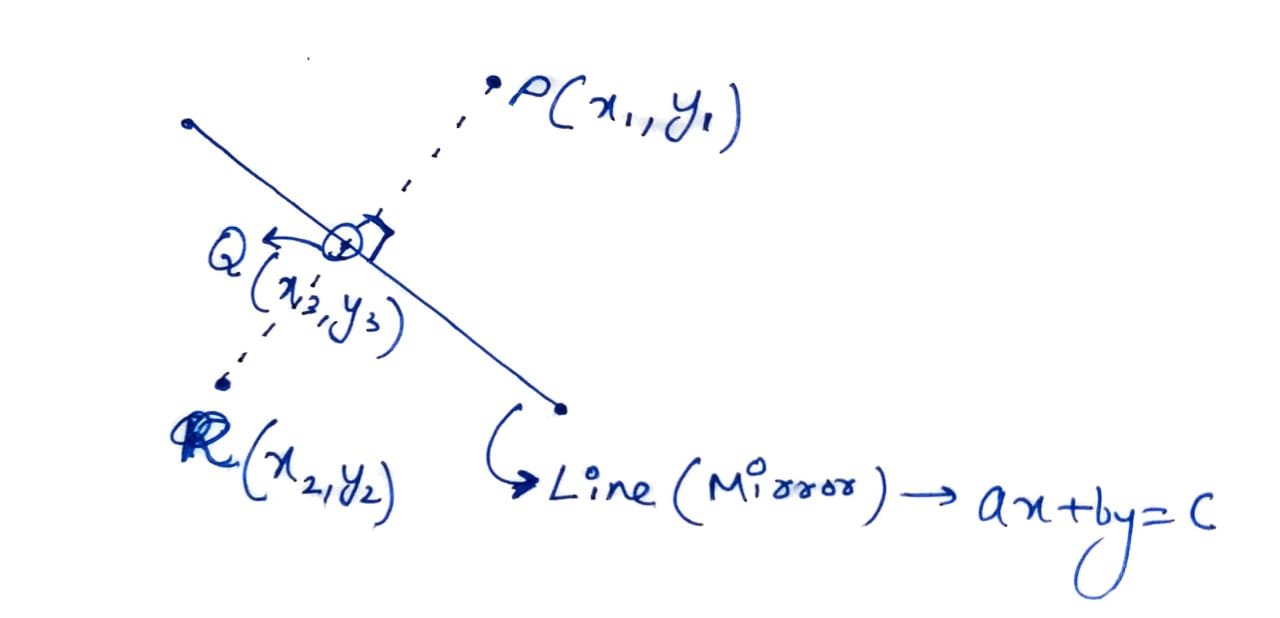 P(x₁, y₁)
Q
(x₃, y₃)
R(x₂, y₂)
Line (Mirror) → ax+by= c